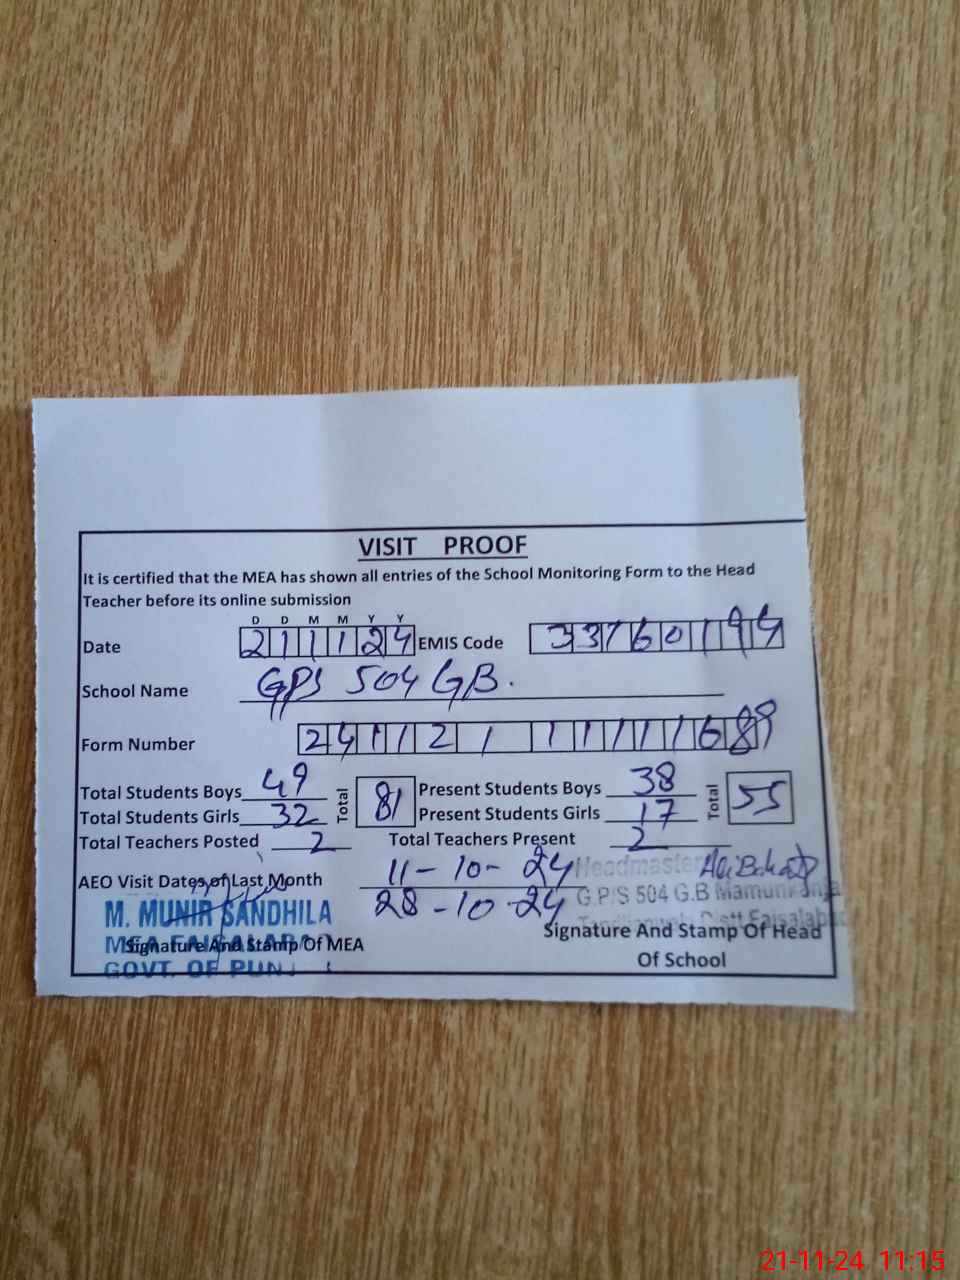 VISIT PROOF
It is certified that the MEA has shown all entries of the School Monitoring Form to the Head
Teacher before its online submission
D D M M Y Y
Date 211124 EMIS Code 33760194
School Name GPS 504 GB.
Form Number 24112111111689
Total Students Boys 49 Total 81 Present Students Boys 38 Total 55
Total Students Girls 32 Present Students Girls 17
Total Teachers Posted 2 Total Teachers Present 2
AEO Visit Dates of Last Month 11-10-24 Headmaster
28-10-24 G.P/S 504 G.B Mamunkanjan
M. MUNIR SANDHILA
MEA FAISALABAD
Signature And Stamp Of MEA
GOVT. OF PUNJ
Tandlianwala Distt Faisalabad
Signature And Stamp Of Head
Of School
21-11-24 11:15